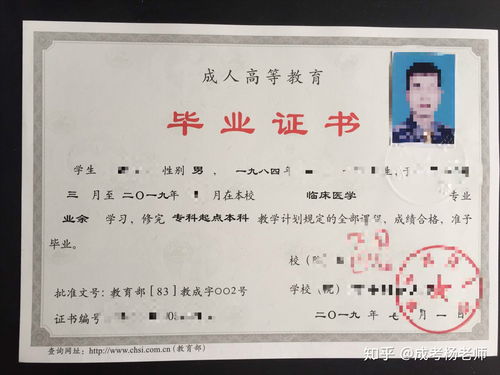 成人高等教育
毕业证书
学生 性别 男 ，一九八四年 生，于
三 月至 二〇一九年 月在本校 临床医学 专业
业余 学习，修完 专科起点本科 教学计划规定的全部课程，成绩合格，准予
毕业。
校（院
批准文号：教育部［83］教成字002号
学校（院）
证书编号
二〇一九年 七 月 一 日
查询网址：http://www.chsi.com.cn（教育部）
知乎 @成考杨老师